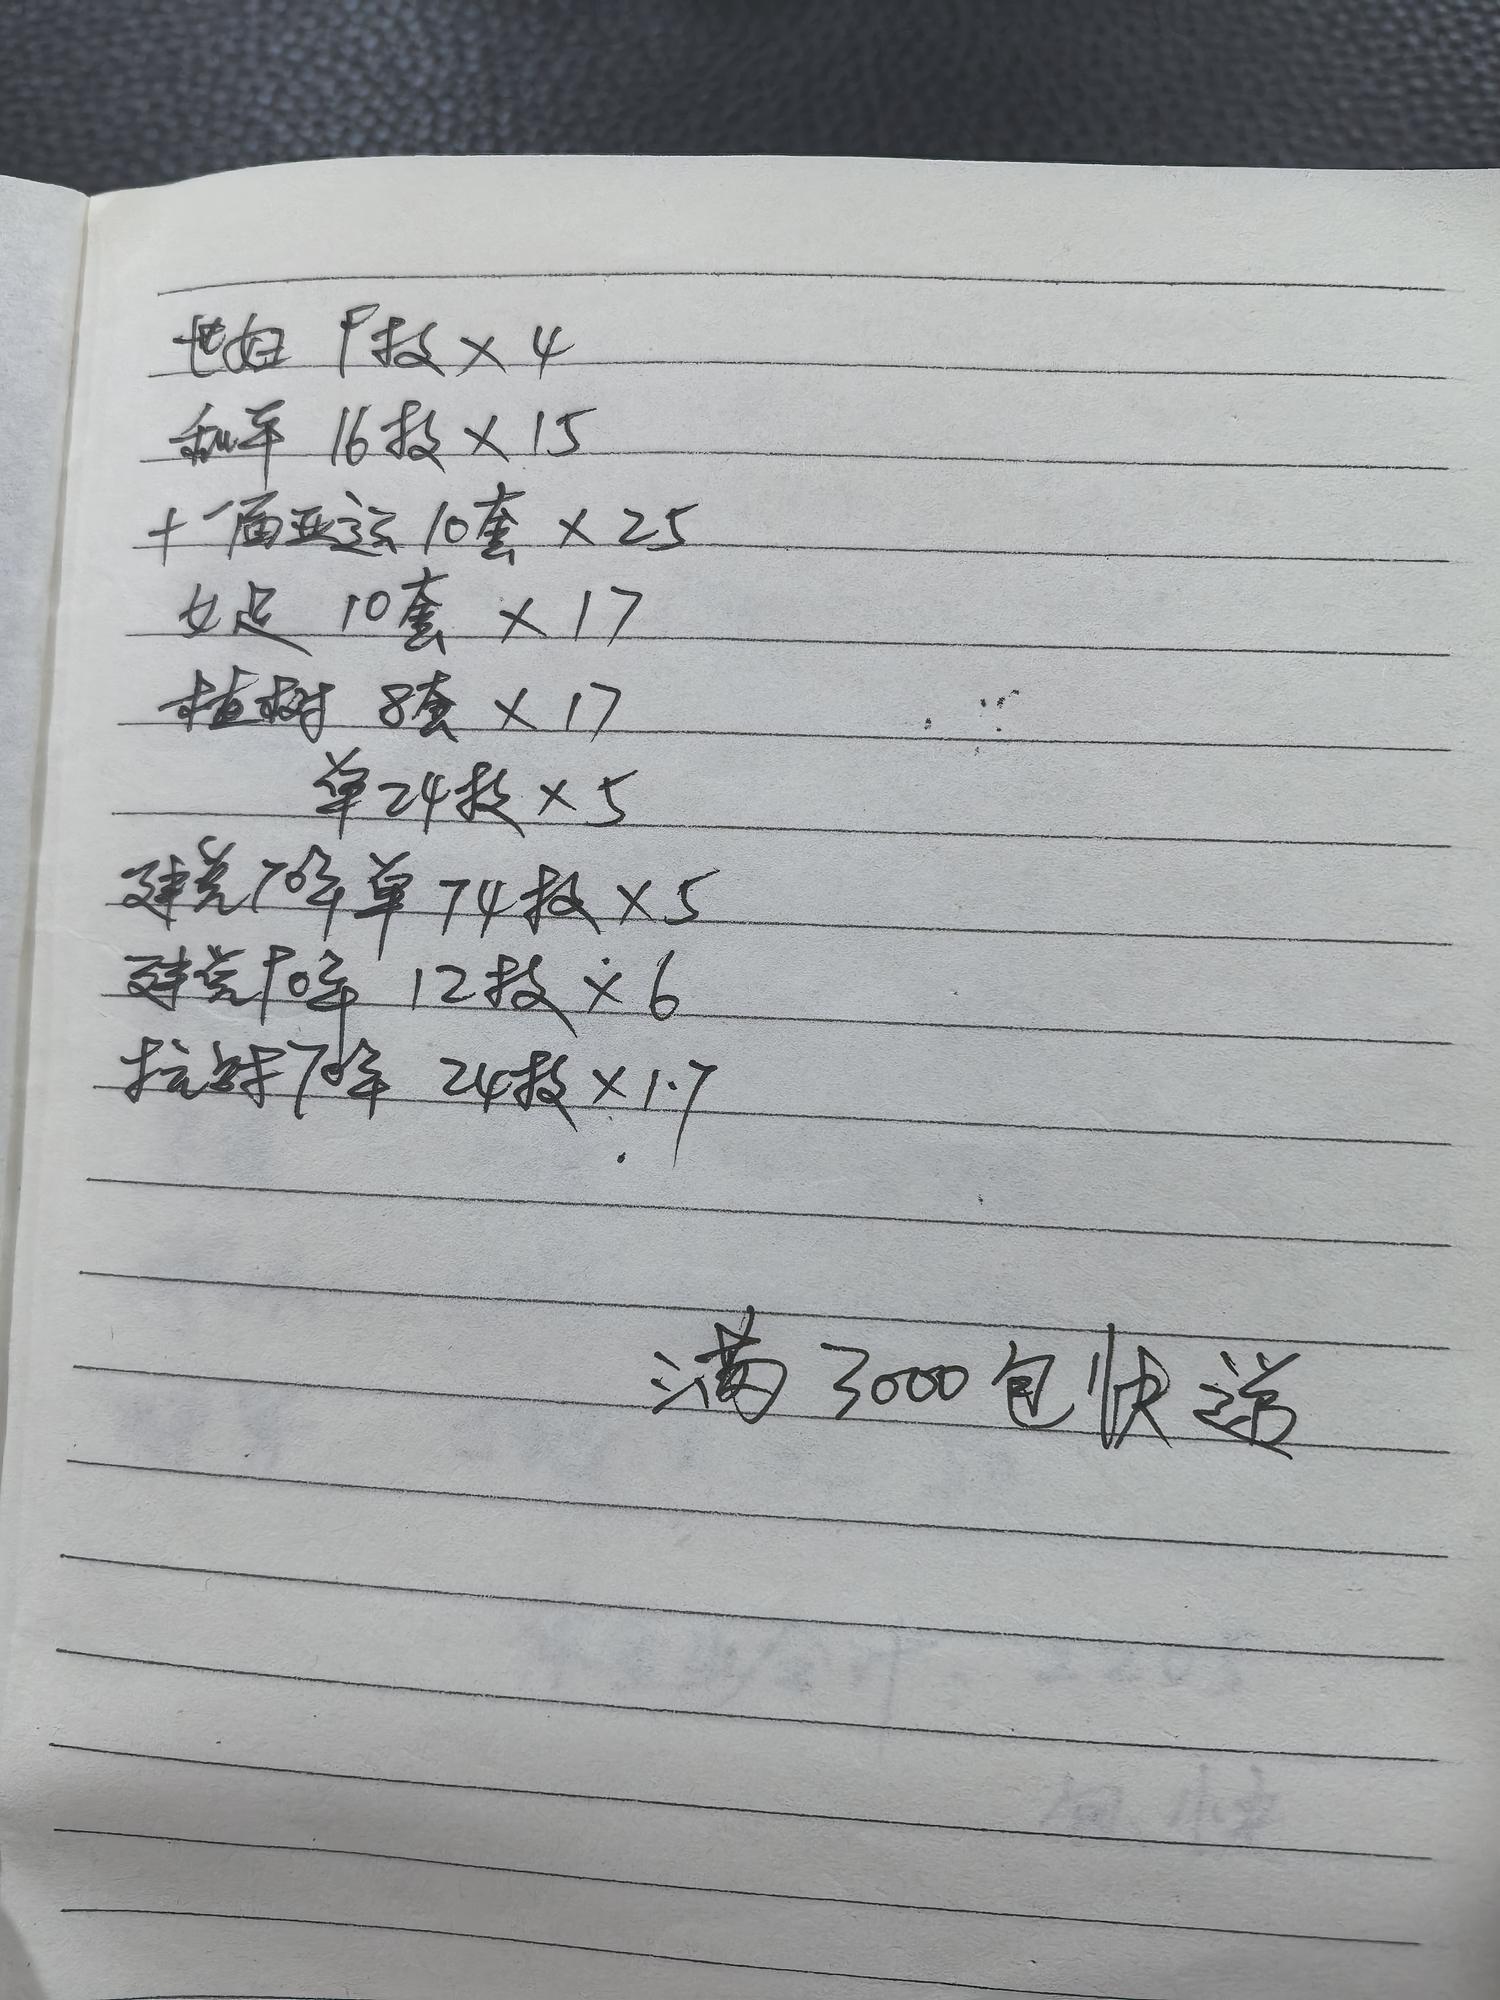 世妇 9枚×4
和平 16枚×15
十一届亚运 10套×25
女足 10套×17
植树 8套×17
单24枚×5
建党70年单 74枚×5
建党90年 12枚×6
抗战70年 24枚×1.7
满3000包快递